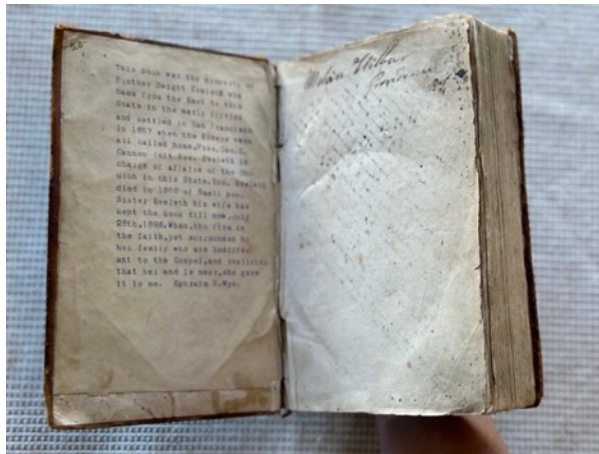 This book was the property of
Brother Dwight Eveleth who
came from the East to this
State in the early fifties
and settled in San Francisco
In 1857 when the Elders were
all called home,Pres.Geo.Q.
Cannon left Bro. Eveleth in
charge of affairs of the Ch-
urch in this State.Bro. Eveleth
died in of Small pox.
Sister Eveleth his wife has
kept the book till now,July
28th.1896.When, tho firm in
the faith,yet surrounded by
her family who are indiffer-
ant to the Gospel,and realizing
that her end is near,she gave
it to me. Ephraim H.Nye.
Wilbur